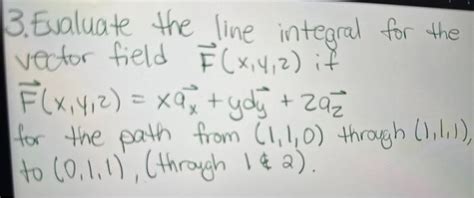 3. Evaluate the line integral for the
vector field F⃗(x,y,z) if
F⃗(x,y,z) = xa⃗x + yd⃗y + 2a⃗z
for the path from (1,1,0) through (1,1,1),
to (0,1,1), (through 1 & 2).